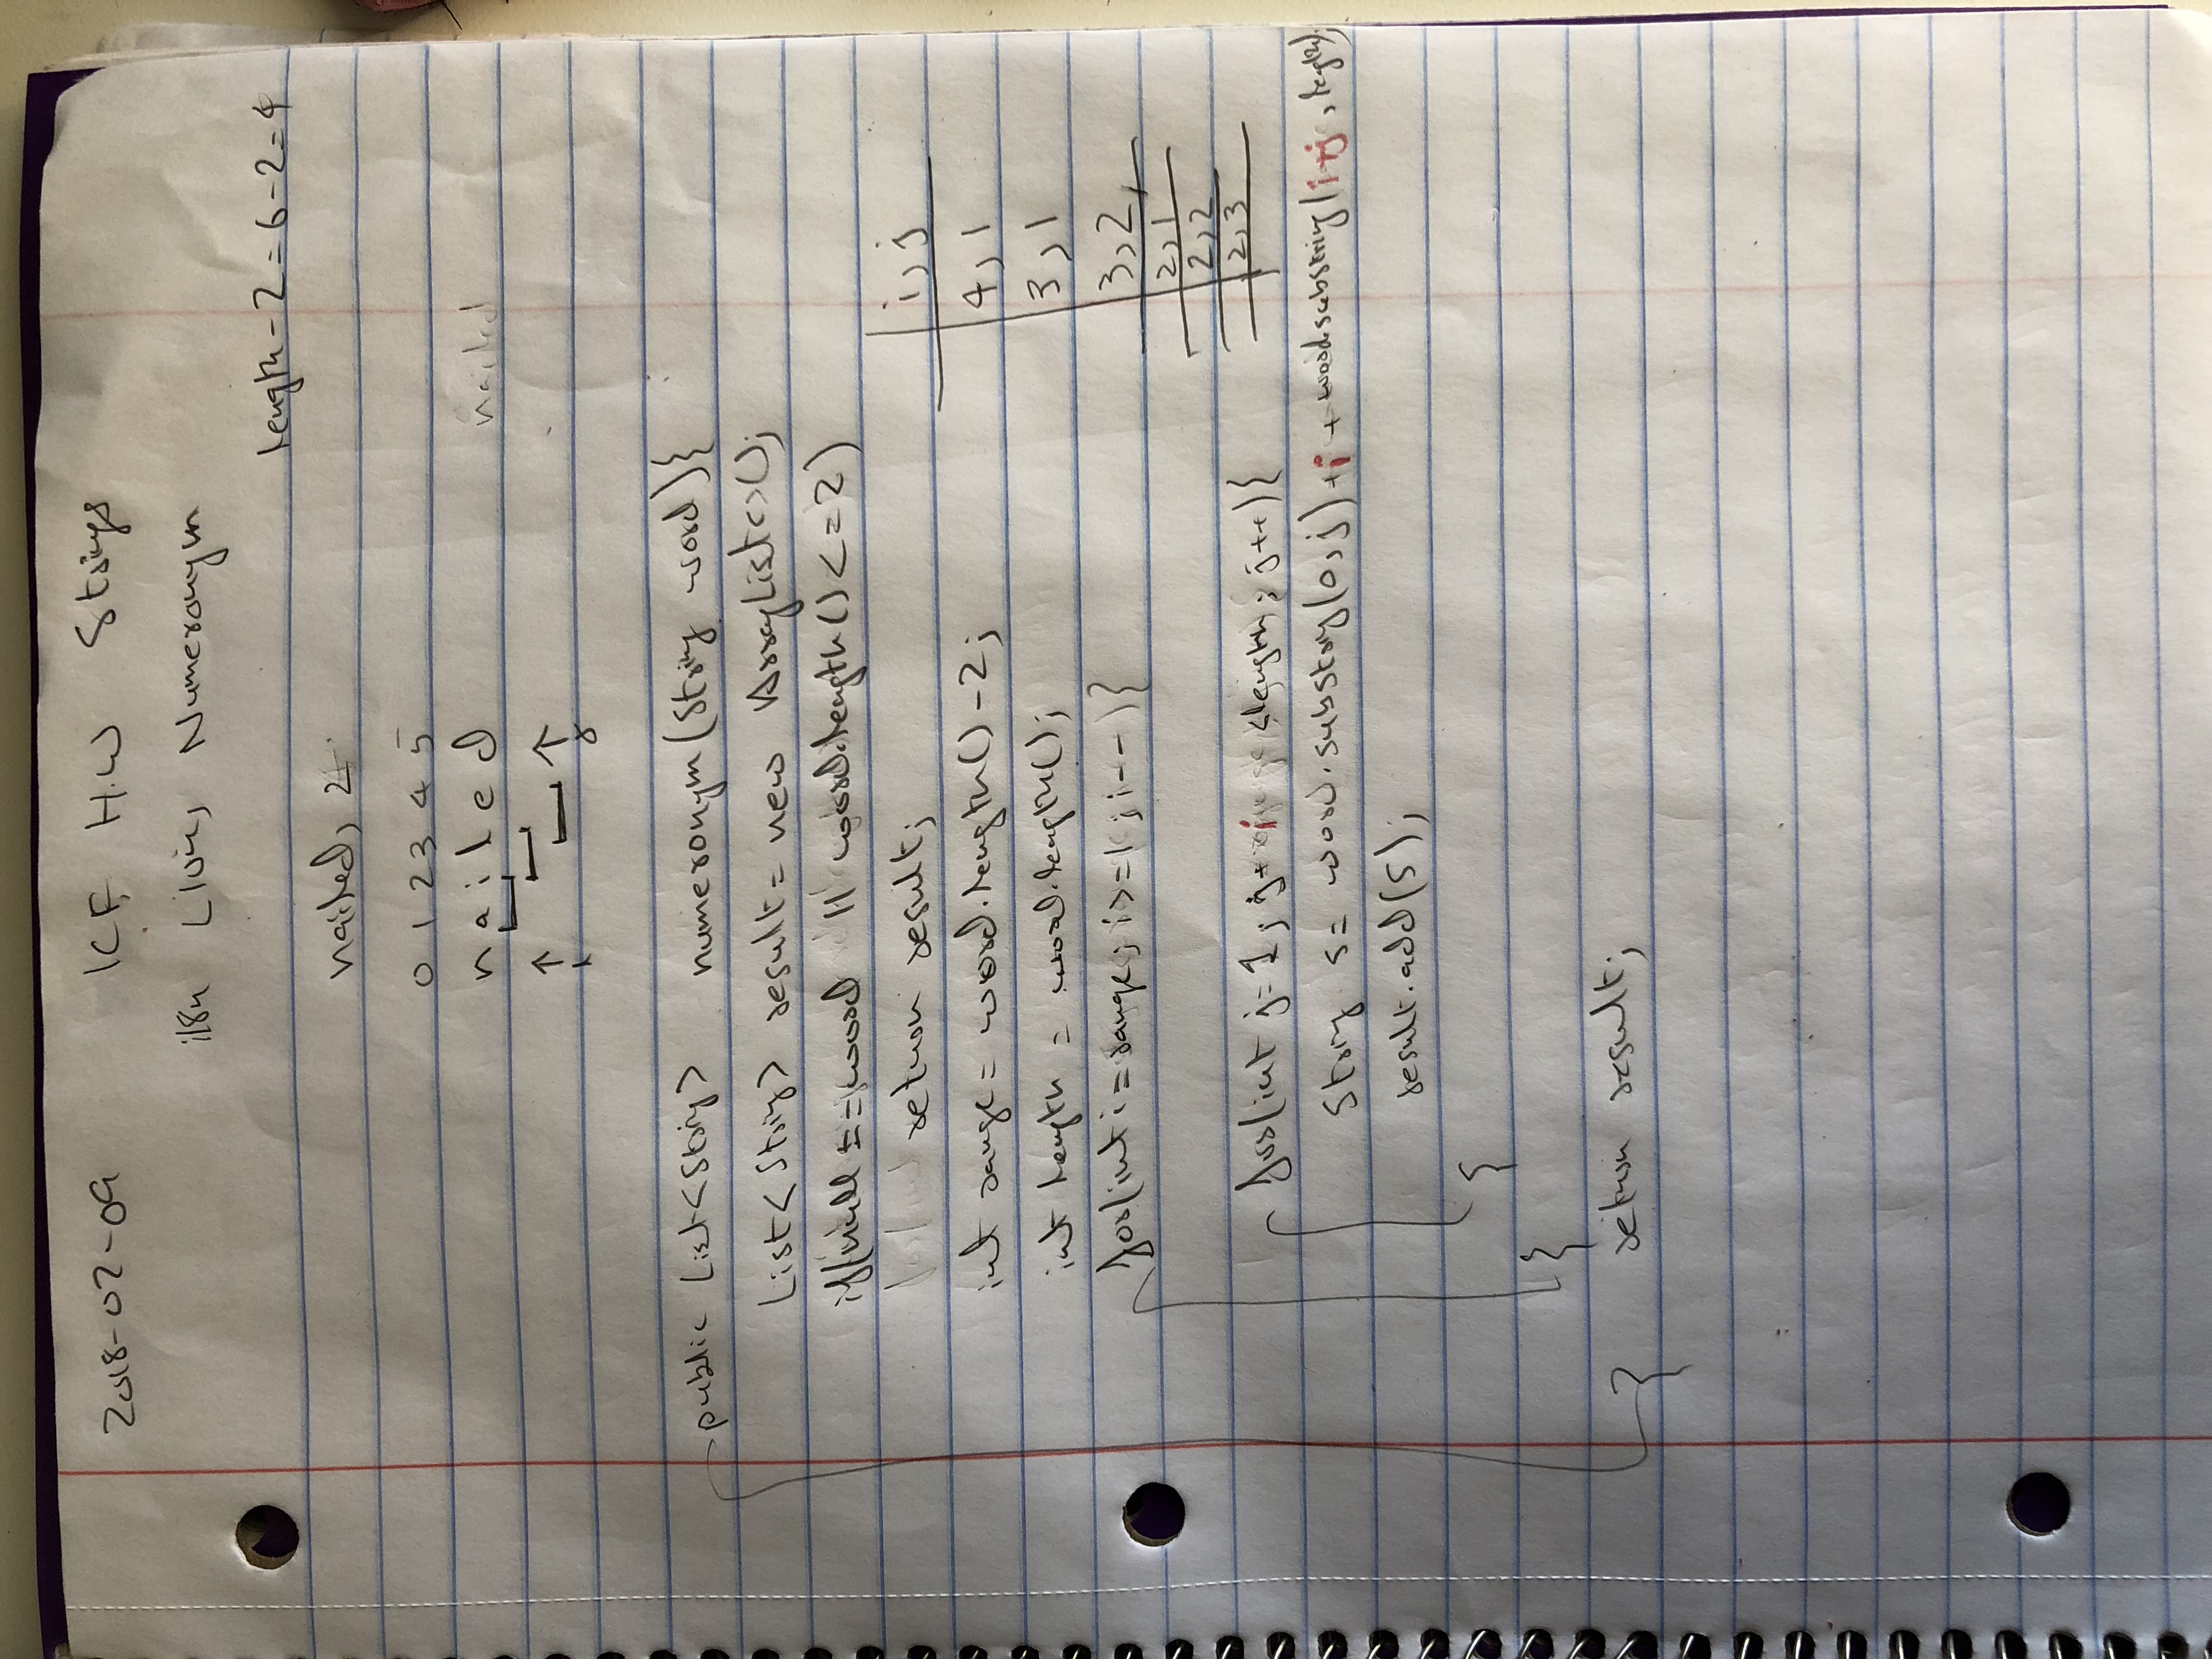 2018-02-09 ICF H.W Strings
i18n Numeronym
length - 2 = 6 - 2 = 4
nailed, 2
0 1 2 3 4 5
n a i l e d nailed
public List<String> numeronym(String word){
List<String> result = new ArrayList<>();
if(null == word || word.length() <= 2)
return result;
i, j
int range = word.length() - 2;
4, 1
int length = word.length();
3, 1
for(int i = range; i >= 1; i--){
3, 2,
2, 1
2, 2
2, 3
for(int j = 1; j + i < length; j++){
String s = word.substring(0, j) + i + word.substring(i+j, length);
result.add(s);
}
}
return result;
}